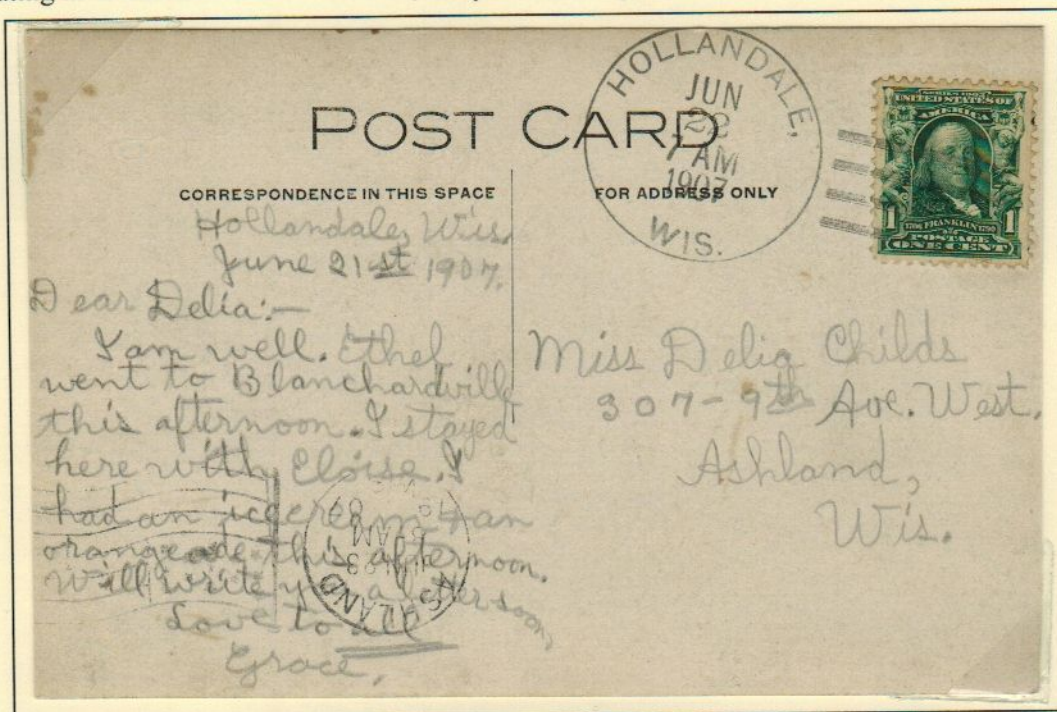 POST CARD
CORRESPONDENCE IN THIS SPACE
FOR ADDRESS ONLY
HOLLANDALE,
JUN
22
7 AM
1907
WIS.
SERIES 1902
UNITED STATES OF
AMERICA
1 1
1706 FRANKLIN 1790
POSTAGE
ONE CENT
Hollandale, Wis.
June 21st 1907.
Dear Delia:—
I am well. Ethel
went to Blanchardville
this afternoon. I stayed
here with Eloise. I
had an icecream & an
orangeade this afternoon.
Will write you a letter soon,
Love to all
Grace.
Miss Delia Childs
307-9th Ave. West.
Ashland,
Wis.
ASHLAND